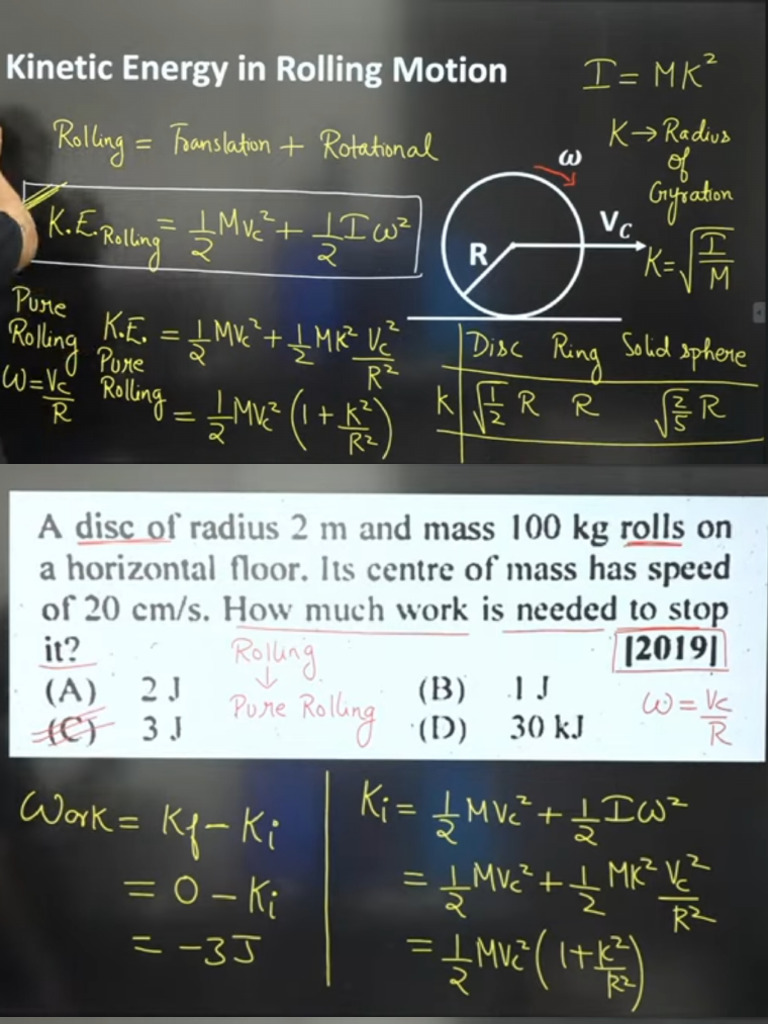 Kinetic Energy in Rolling Motion
I = MK²
Rolling = Translation + Rotational
K → Radius
of
Gyration
K = √(I/M)
ω
V_C
R
K.E._Rolling = 1/2 MV_c² + 1/2 I ω²
Pure
Rolling
ω = V_c/R
K.E. Pure Rolling = 1/2 MV_c² + 1/2 MK² V_c²/R²
= 1/2 MV_c² (1 + K²/R²)
Disc Ring Solid sphere
K √(1/2) R R √(2/5) R
A disc of radius 2 m and mass 100 kg rolls on
a horizontal floor. Its centre of mass has speed
of 20 cm/s. How much work is needed to stop
it? [2019]
Rolling
↓
Pure Rolling
(A) 2 J (B) 1 J
(C) 3 J (D) 30 kJ
ω = V_c/R
Work = K_f - K_i
= 0 - K_i
= -3J
K_i = 1/2 MV_c² + 1/2 I ω²
= 1/2 MV_c² + 1/2 MK² V_c²/R²
= 1/2 MV_c² (1 + K²/R²)